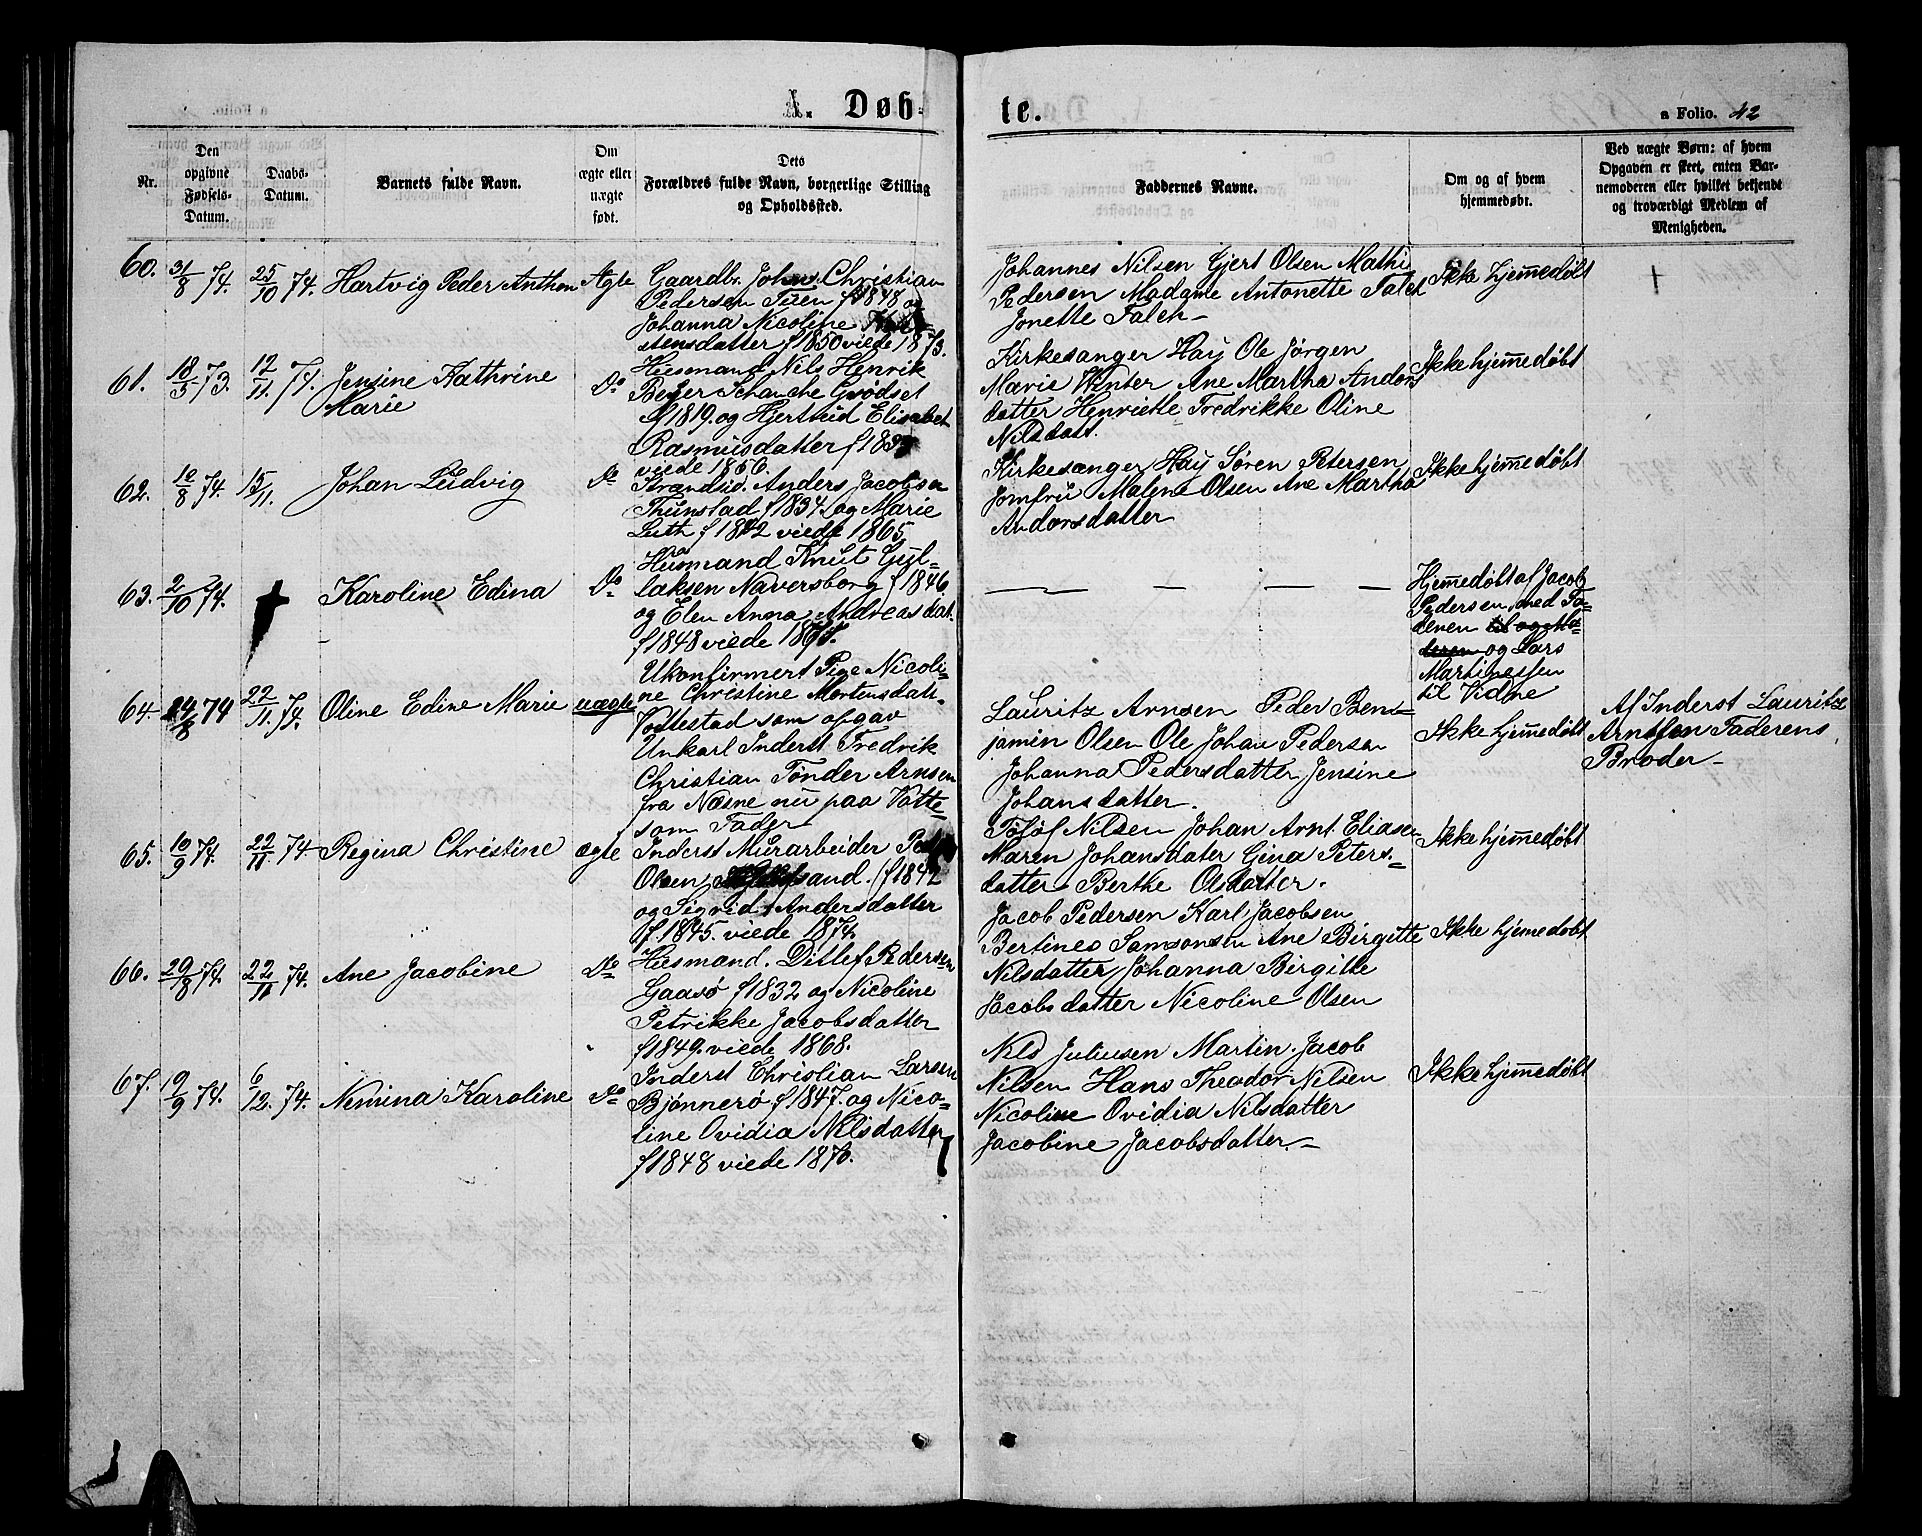 A. Døb-
te.
a Folio. 42
Nr.
Den
opgivne
Fødsels-
Datum.
Daabs-
Datum.
Barnets fulde Navn.
Om
ægte eller
uægte
født.
Dets
Forældres fulde Navn, borgerlige Stilling
og Opholdssted.
Faddernes Navne.
Om og af hvem
hjemmedøbt.
Ved uægte Børn: af hvem
Opgaven er skeet, enten Bar-
nemoderen eller hvilket bekjendt
og troværdigt Medlem af
Menigheden.
60. 31/8 74. 25/10 74. Hartvig Peder Anthon Ægte
Gaardbr. Johan Christian
Pedersen Teien f 1848 og
Johanna Nicoline
stensdatter f 1850 viede 1873.
Johannes Nilsen Gjert Olsen Mathi
Pedersen Madame Antonette Falch
Jonette Falch
Ikke hjemmedøbt
61. 18/5 73. 12/11 74. Jensine Kathrine
Marie
Do
Huusmand Nils Henrik
Beyer Schanche Grødset
f 1819. og Hjertrud Elisabet
Rasmusdatter f 183
viede 1856.
Kirkesanger Hay Ole Jørgen
Marie Winter Ane Martha Andors
datter Henriette Fredrikke Oline
Nilsdatt.
Ikke hjemmedøbt
62. 10/8 74. 15/11. Johan Ludvig Do
Strandsid. Anders Jacobsen
Thunstad f 1834. og Marie
Luth f 1842 viede 1865.
Kirkesænger Hay Søren Petersen
Jomfru Malene Olsen Ane Martha
Andorsdatter
Ikke hjemmedøbt
63. 2/10 74. Karoline Edina Do
Huusmand Knut Gul-
laksen Naversborg f 1846.
og Elen Anna Andreasdat.
f 1848 viede 18
Hjemmedøbt af Jacob
Pedersen, med Fa-
deren til og Mo-
deren og Lars
Martinessen
til Vidne
64. 24/8 74 22/11. 74. Oline Edine Marie uægte
Ukonfirmert Pige Nicoli-
ne Christine Mortensdatt.
Vottestad som opgav
Unkarl Inderst Fredrik
Christian Tønder Arnsen
fra Næsne nu paa Votte-
som Fader
Lauritz Arnsen Peder Ben-
jamin Olsen Ole Johan Pedersen
Johanna Pedersdatter Jensine
Johansdatter.
Ikke hjemmedøbt
Af Inderst Lauritz
Arntsen Faderens
Broder
65. 10/9 74. 22/11 74. Regina Christine ægte
Inderst Murarbeider
Olsen sand. f 1842
og Sigrid Andersdatter
f. 1845. viede 1874.
Toløf Nilsen Johan Arnt Eliasen
Maren Johansdater Gina Peters-
datter Berthe Olsdatter.
Ikke hjemmedøbt
66. 29/8 74. 22/11 74. Ane Jacobine Do
Huusmand. Ditlef Pedersen
Gaasø f 1832 og Nicoline
Petrikke Jacobsdatter
f 1849. viede 1868.
Jacob Pedersen Karl Jacobsen
Bertines Samsonsen Ane Birgitte
Nilsdatter Johanna Birgitte
Jacobsdatter Nicoline Olsen
Ikke hjemmedøbt
67. 19/9 74. 6/12. 74. Nemina Karoline Do
Inderst Christian Larsen
Bjønnerø f 1847. og Nico-
line Ovidia Nilsdatter
f 1848 viede 1870.
Nils Juliusen Martin Jacob
Nilsen Hans Theodor Nilsen
Nicoline Ovidia Nilsdatter
Jacobine Jacobsdatter.
Ikke hjemmedøbt